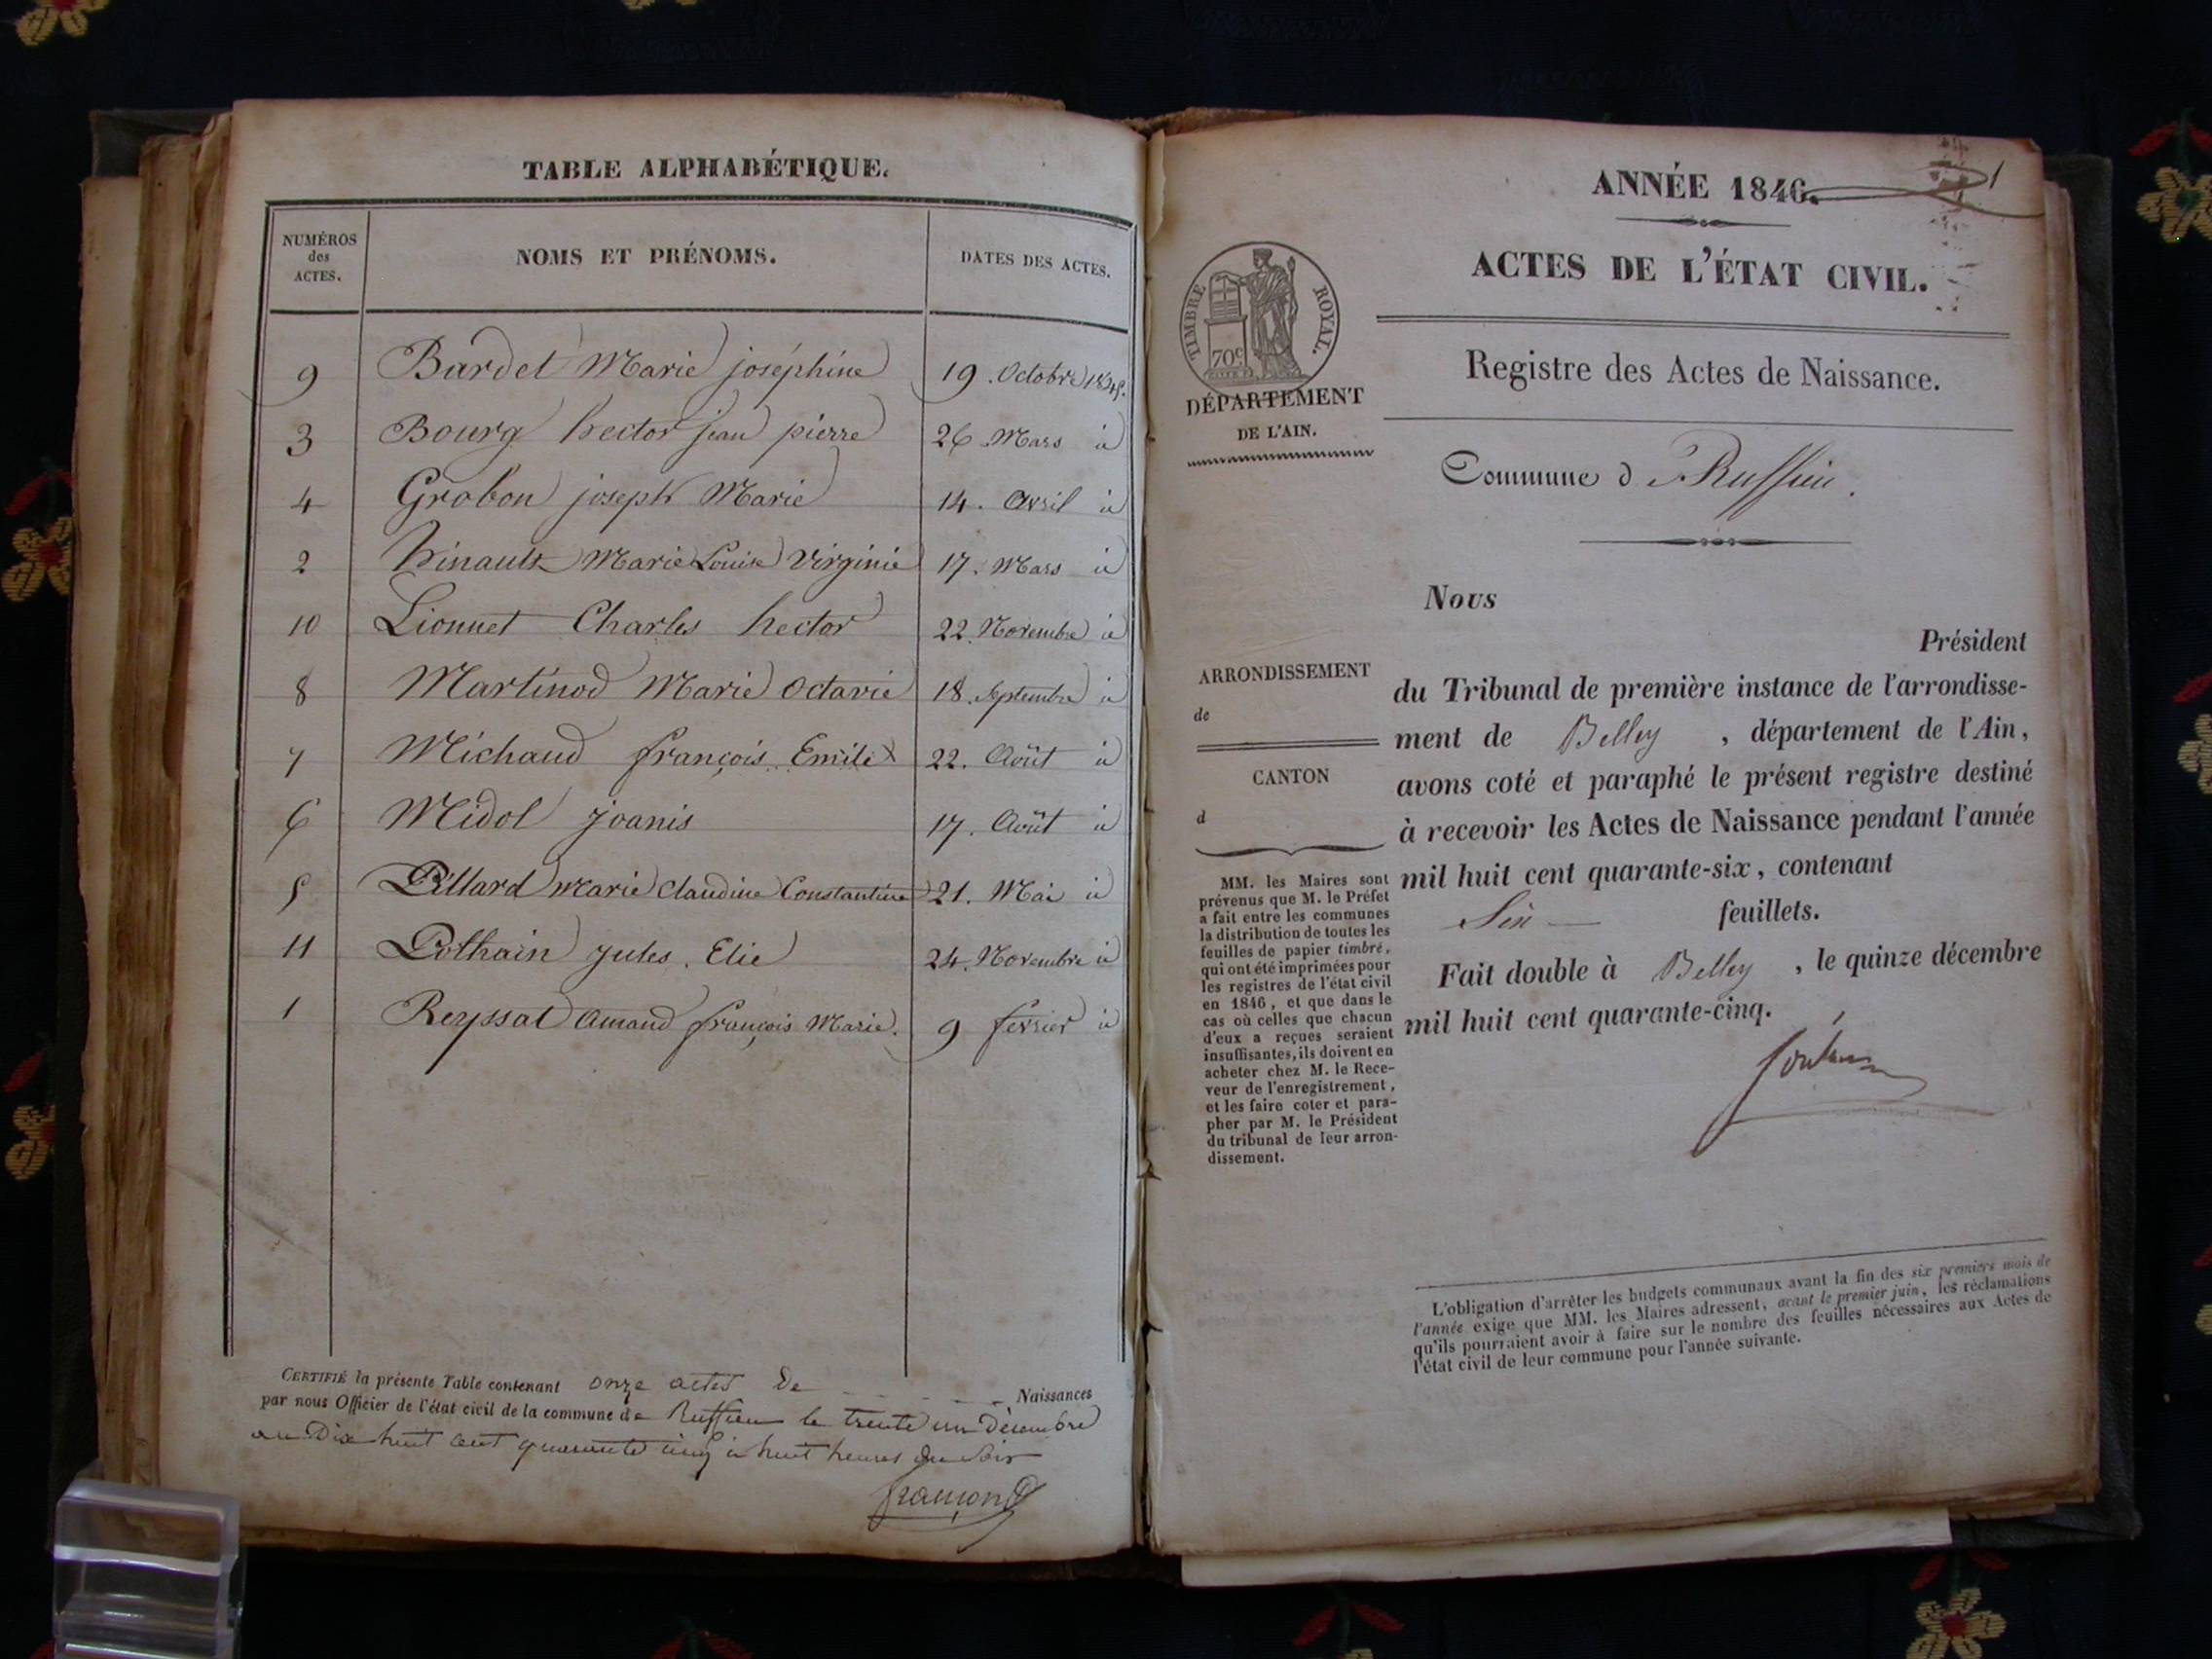 TABLE ALPHABÉTIQUE.
NUMÉROS des ACTES.
NOMS ET PRÉNOMS.
DATES DES ACTES.
9 Bardet Marie joséphine 19 Octobre 1845.
3 Bourg hector jean pierre 26 Mars id
4 Grobon joseph Marie 14. Avril id
2 hinault Marie Louise Virginie 17. Mars id
10 Lionnet Charles hector 22 Novembre id
8 Martinod Marie Octavie 18. Septembre id
7 Michaud françois Emile 22. Août id
6 Midol joanis 17. Août id
5 Pillard Marie Claudine Constantine 21. Mai id
11 Pothain jules. Elie 24. Novembre id
1 Reyssat amand françois Marie. 9 fevrier id
CERTIFIÉ la présente Table contenant onze actes de Naissances
par nous Officier de l'état civil de la commune de Ruffieu le trente un Décembre
an Dix huit cent quarante cinq à huit heures du Soir
ANNÉE 1846.
1
ACTES DE L'ÉTAT CIVIL.
TIMBRE ROYAL.
70c
DÉPARTEMENT
DE L'AIN.
Registre des Actes de Naissance.
Commune d Ruffieu.
ARRONDISSEMENT
de
CANTON
d
MM. les Maires sont
prévenus que M. le Préfet
a fait entre les communes
la distribution de toutes les
feuilles de papier timbré,
qui ont été imprimées pour
les registres de l'état civil
en 1846, et que dans le
cas où celles que chacun
d'eux a reçues seraient
insuffisantes, ils doivent en
acheter chez M. le Rece-
veur de l'enregistrement,
et les faire coter et para-
pher par M. le Président
du tribunal de leur arron-
dissement.
Nous
Président
du Tribunal de première instance de l'arrondisse-
ment de Belley , département de l'Ain,
avons coté et paraphé le présent registre destiné
à recevoir les Actes de Naissance pendant l'année
mil huit cent quarante-six, contenant
Six feuillets.
Fait double à Belley , le quinze décembre
mil huit cent quarante-cinq.
L'obligation d'arrêter les budgets communaux avant la fin des six premiers mois de
l'année exige que MM. les Maires adressent, avant le premier juin, les réclamations
qu'ils pourraient avoir à faire sur le nombre des feuilles nécessaires aux Actes de
l'état civil de leur commune pour l'année suivante.